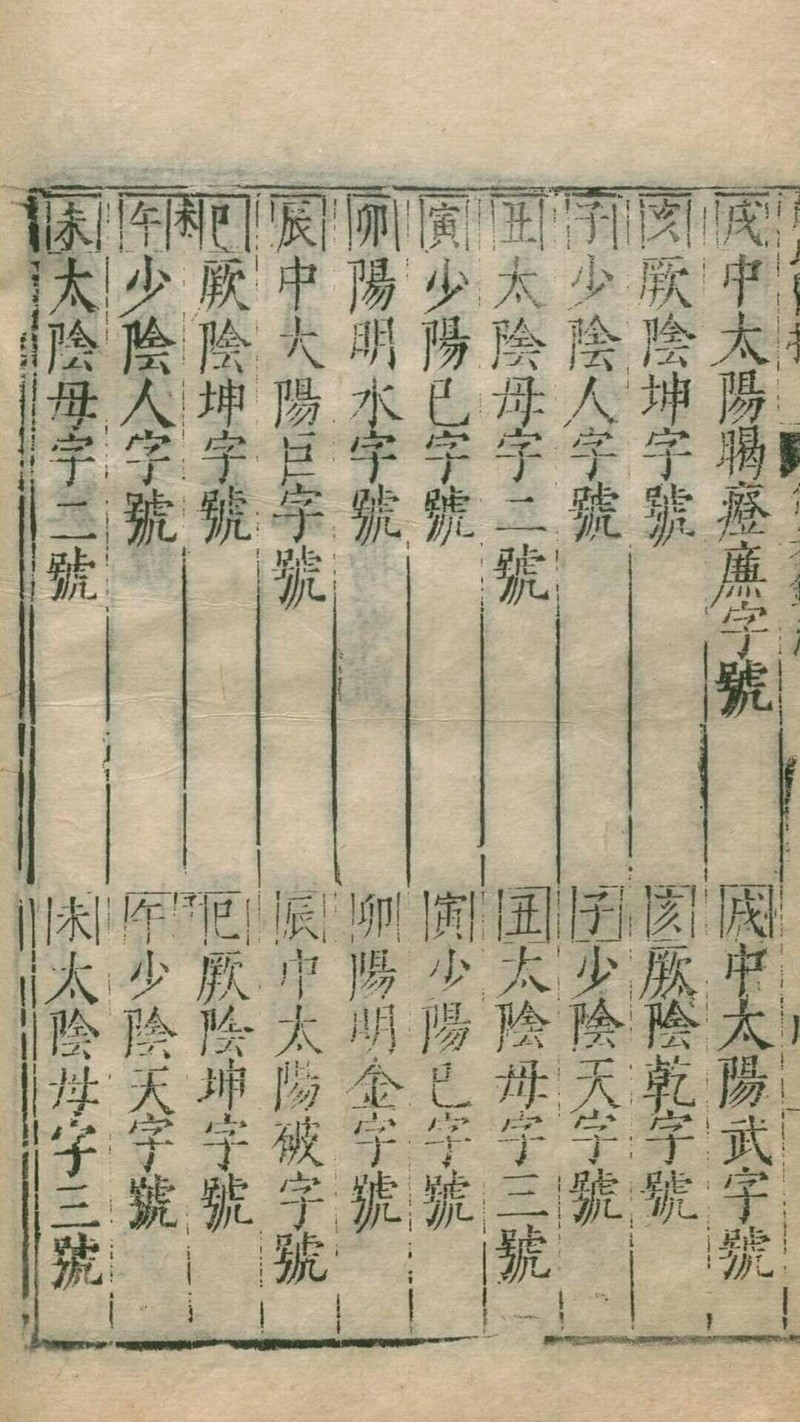 戌中太陽暍廉字號
亥厥陰坤字號
子少陰人字號
丑太陰母字二號
寅少陽已字號
卯陽明水字號
辰中大陽巨字號
巳厥陰坤字號
午少陰人字號
未太陰母字二號
戌中太陽武字號
亥厥陰乾字號
子少陰天字號
丑太陰母字三號
寅少陽已字號
卯陽明金字號
辰中太陽破字號
巳厥陰坤字號
午少陰天字號
未太陰母字三號